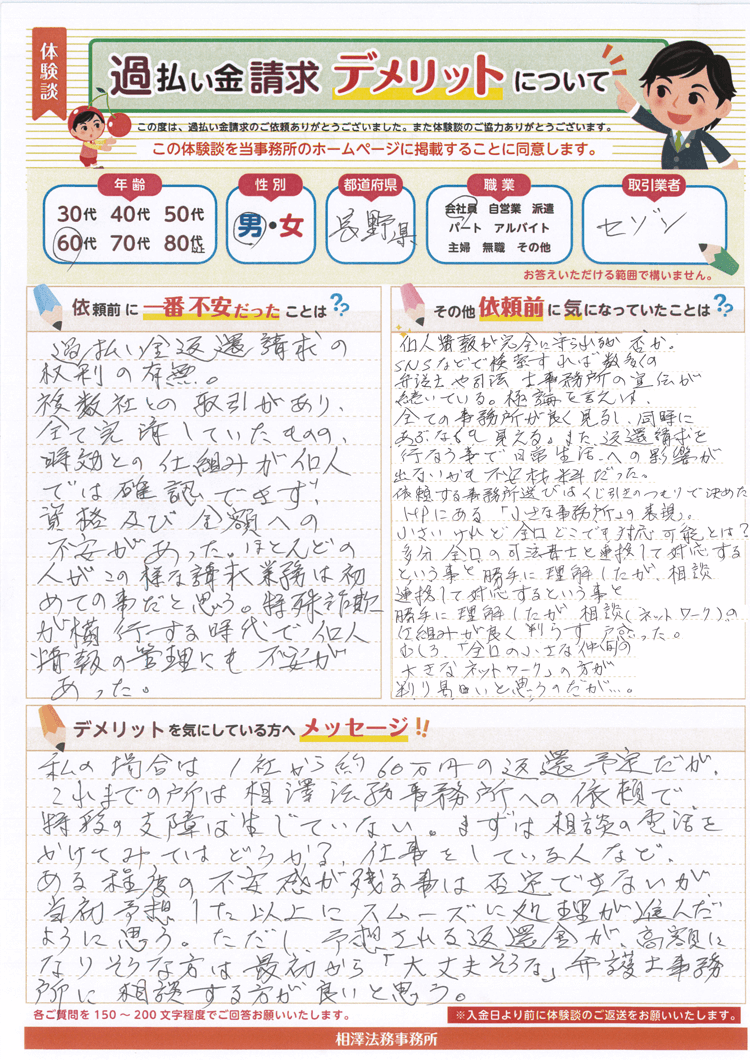 体験談
過払い金請求 デメリットについて
この度は、過払い金請求のご依頼ありがとうございました。また体験談のご協力ありがとうございます。
この体験談を当事務所のホームページに掲載することに同意します。
年齢
30代 40代 50代
60代 70代 80代以上
性別
男・女
都道府県
長野県
職業
会社員 自営業 派遣
パート アルバイト
主婦 無職 その他
取引業者
セゾン
お答えいただける範囲で構いません。
依頼前に一番不安だったことは??
過払い金返還請求の
権利の有無。
複数社との取引があり、
全て完済していたものの、
時効との仕組みが個人
では確認できず、
資格及び金額への
不安があった。ほとんどの
人がこの様な請求業務は初
めての事だと思う。特殊詐欺
が横行する時代で個人
情報の管理にも不安が
あった。
その他依頼前に気になっていたことは??
個人情報が完全に守られるか否か。
SNSなどで検索すれば数多くの
弁護士や司法士事務所の宣伝が
続いている。極論を言えば、
全ての事務所が良く見るし、同時に
あぶなくも見える。また、返還請求を
行なう事で日常生活への影響が
出ないかも不安材料だった。
依頼する事務所選びはくじ引きのつもりで決めた
HPにある「小さな事務所」の表現。
小さいけれど全国どこでも対応可能とは?
多分全国の司法書士と連携して対応する
という事と勝手に理解したが、相談
連携して対応するという事と
勝手に理解したが相談(ネットワーク)の
仕組みが良く判らず、惑った。
むしろ、「全国の小さな仲間の
大きなネットワーク」の方が
判り易いと思うのだが…。
デメリットを気にしている方へメッセージ!!
私の場合は1社から約60万円の返還予定だが、
これまでの所は相澤法務事務所への依頼で、
特段の支障は生じていない。まずは相談の電話を
かけてみてはどうかな、仕事をしている人など、
ある程度の不安感が残る事は否定できないが
当初予想した以上にスムーズに処理が進んだ
ように思う。ただし、予想される返還金が、高額に
なりそうな方は最初から「大丈夫そうな」弁護士事務
所に相談する方が良いと思う。
各ご質問を150〜200文字程度でご回答お願いいたします。
※入金日より前に体験談のご返送をお願いいたします。
相澤法務事務所